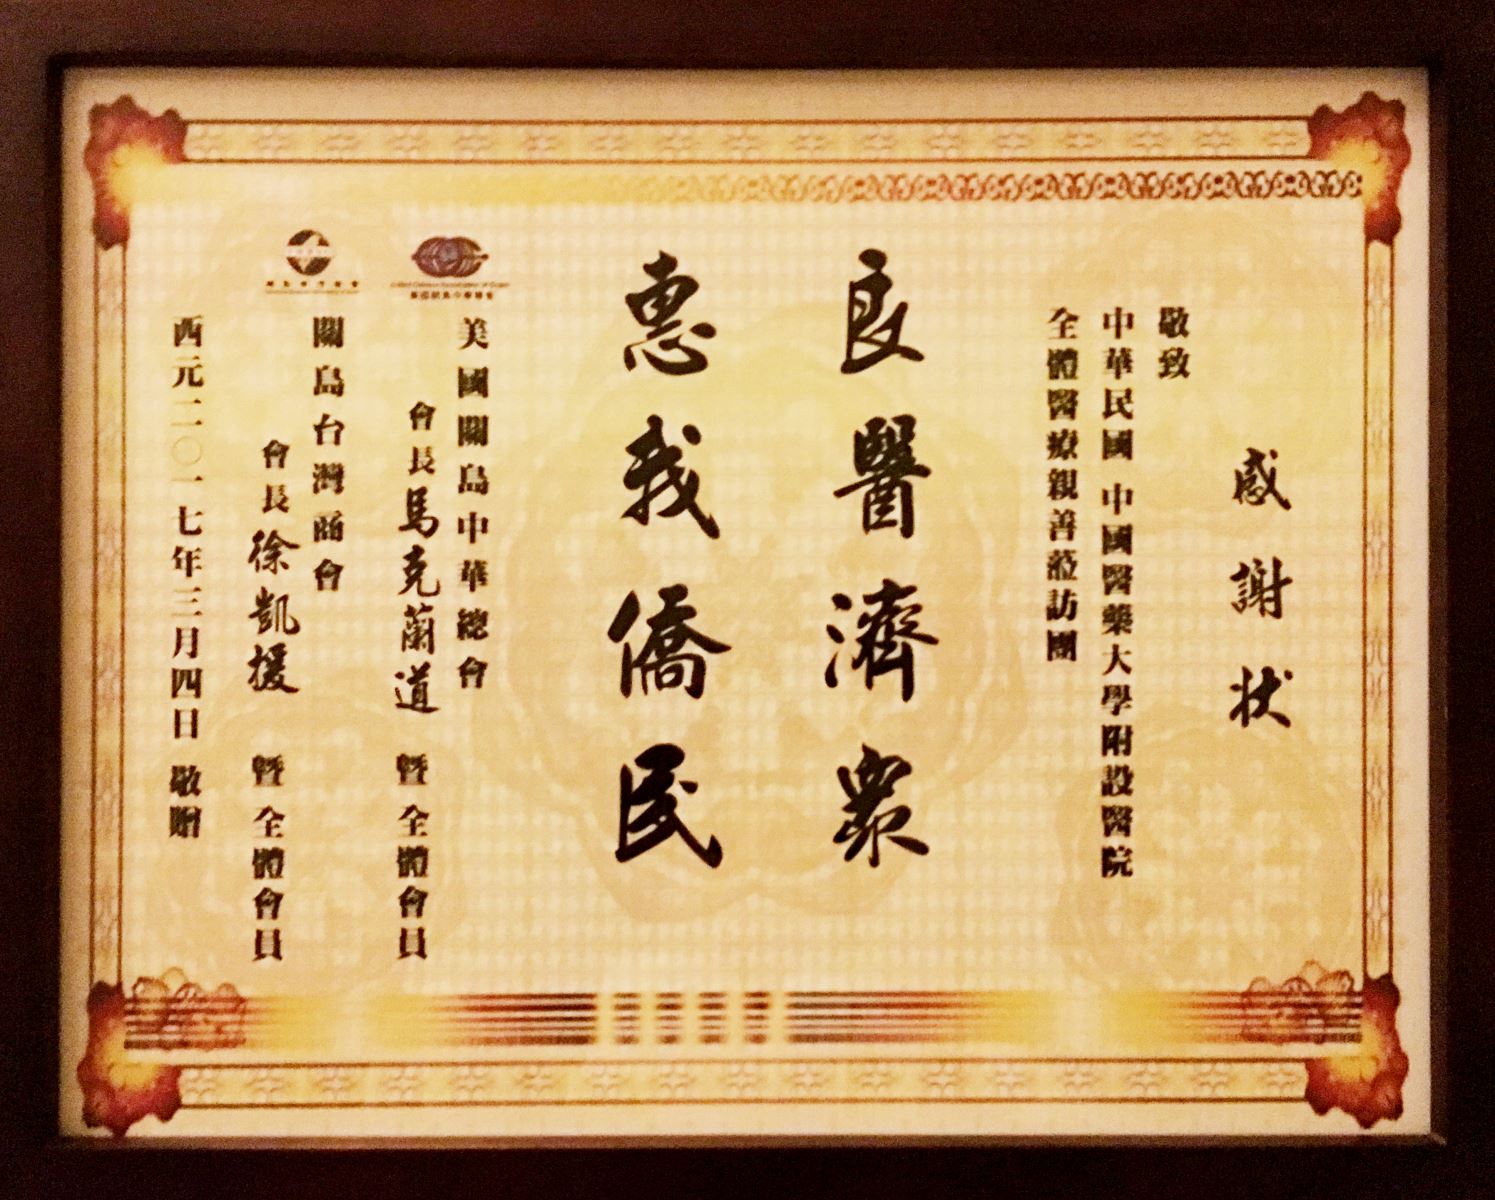 感謝狀
敬致
中華民國 中國醫藥大學附設醫院
全體醫療親善蒞訪團
良醫濟眾
惠我僑民
美國關島中華總會
會長馬克蘭道 暨 全體會員
關島台灣商會
會長徐凱援 暨 全體會員
西元二〇一七年三月四日 敬贈